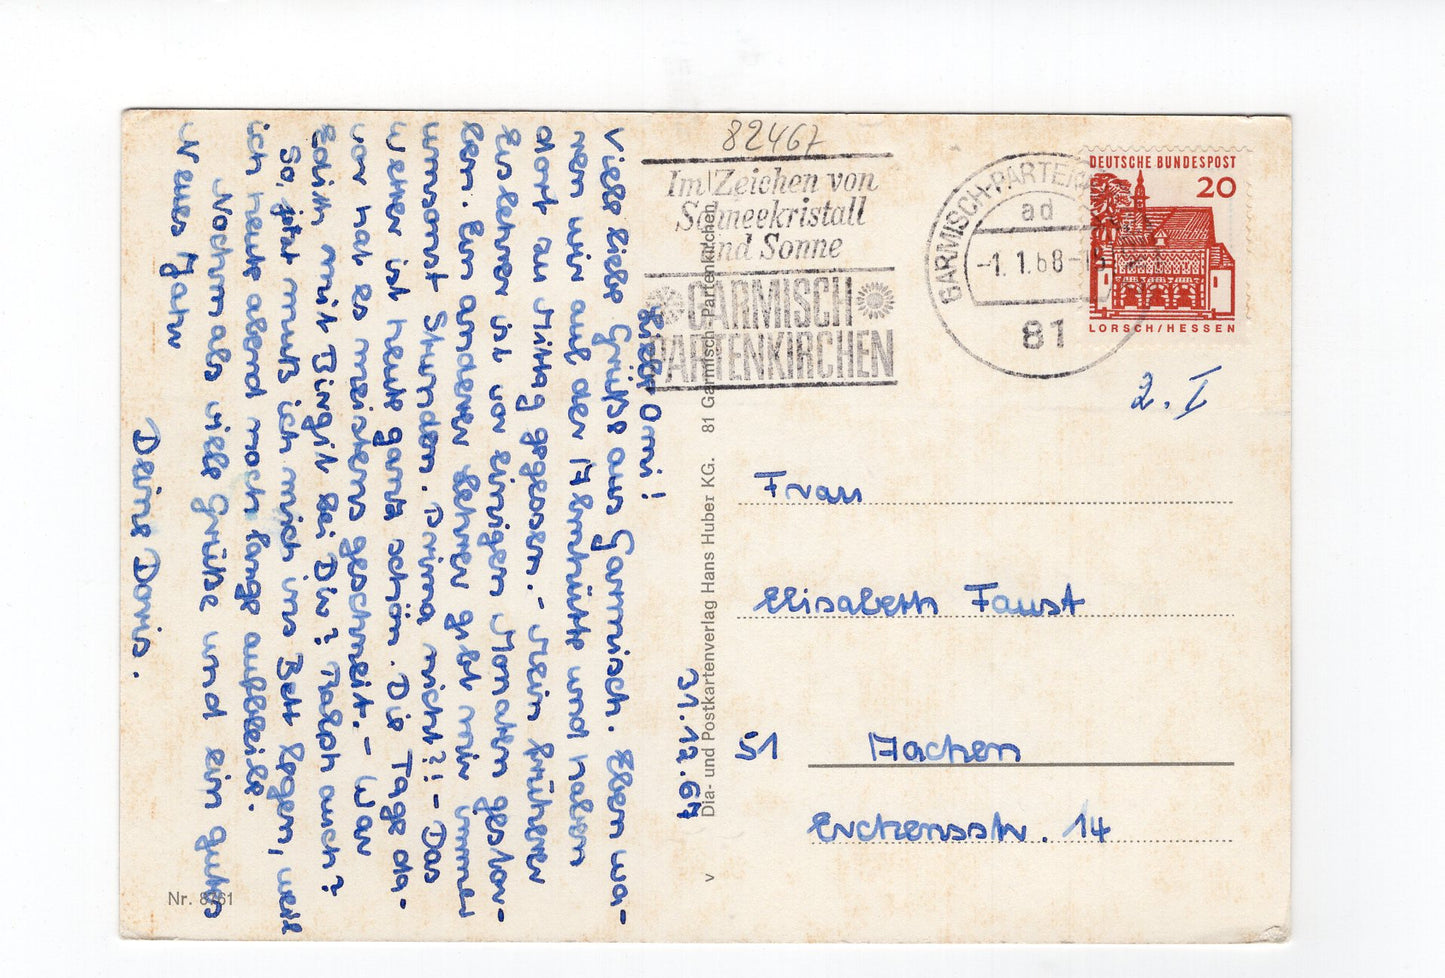 82467
Im Zeichen von
Schneekristall
und Sonne
GARMISCH
PARTENKIRCHEN
GARMISCH-PARTENK
ad
-1.1.68-
81
DEUTSCHE BUNDESPOST
20
LORSCH/HESSEN
2. I
31.12.67
Liebe Omi!
Viele liebe Grüße aus Garmisch. Eben wa-
ren wir auf der Almhütte und haben
dort zu Mittag gegessen. - Mein früherer
Eislehrer ist vor einigen Monaten gestor-
ben. Ein anderer Lehrer gibt mir immer
umsonst Stunden. Prima nicht?! - Das
Wetter ist heute ganz schön. Die Tage da-
vor hat es meistens geschneit. - War
Edith mit Birgit bei Dir? Ralph auch?
So, jetzt muß ich mich ins Bett legen, weil
ich heute abend noch lange aufbleibe.
Nochmals viele Grüße und ein gutes
Neues Jahr
Deine Doris.
Frau
Elisabeth Faust
51 Aachen
Erckensstr. 14
Dia- und Postkartenverlag Hans Huber KG. 81 Garmisch-Partenkirchen
v
Nr. 8761